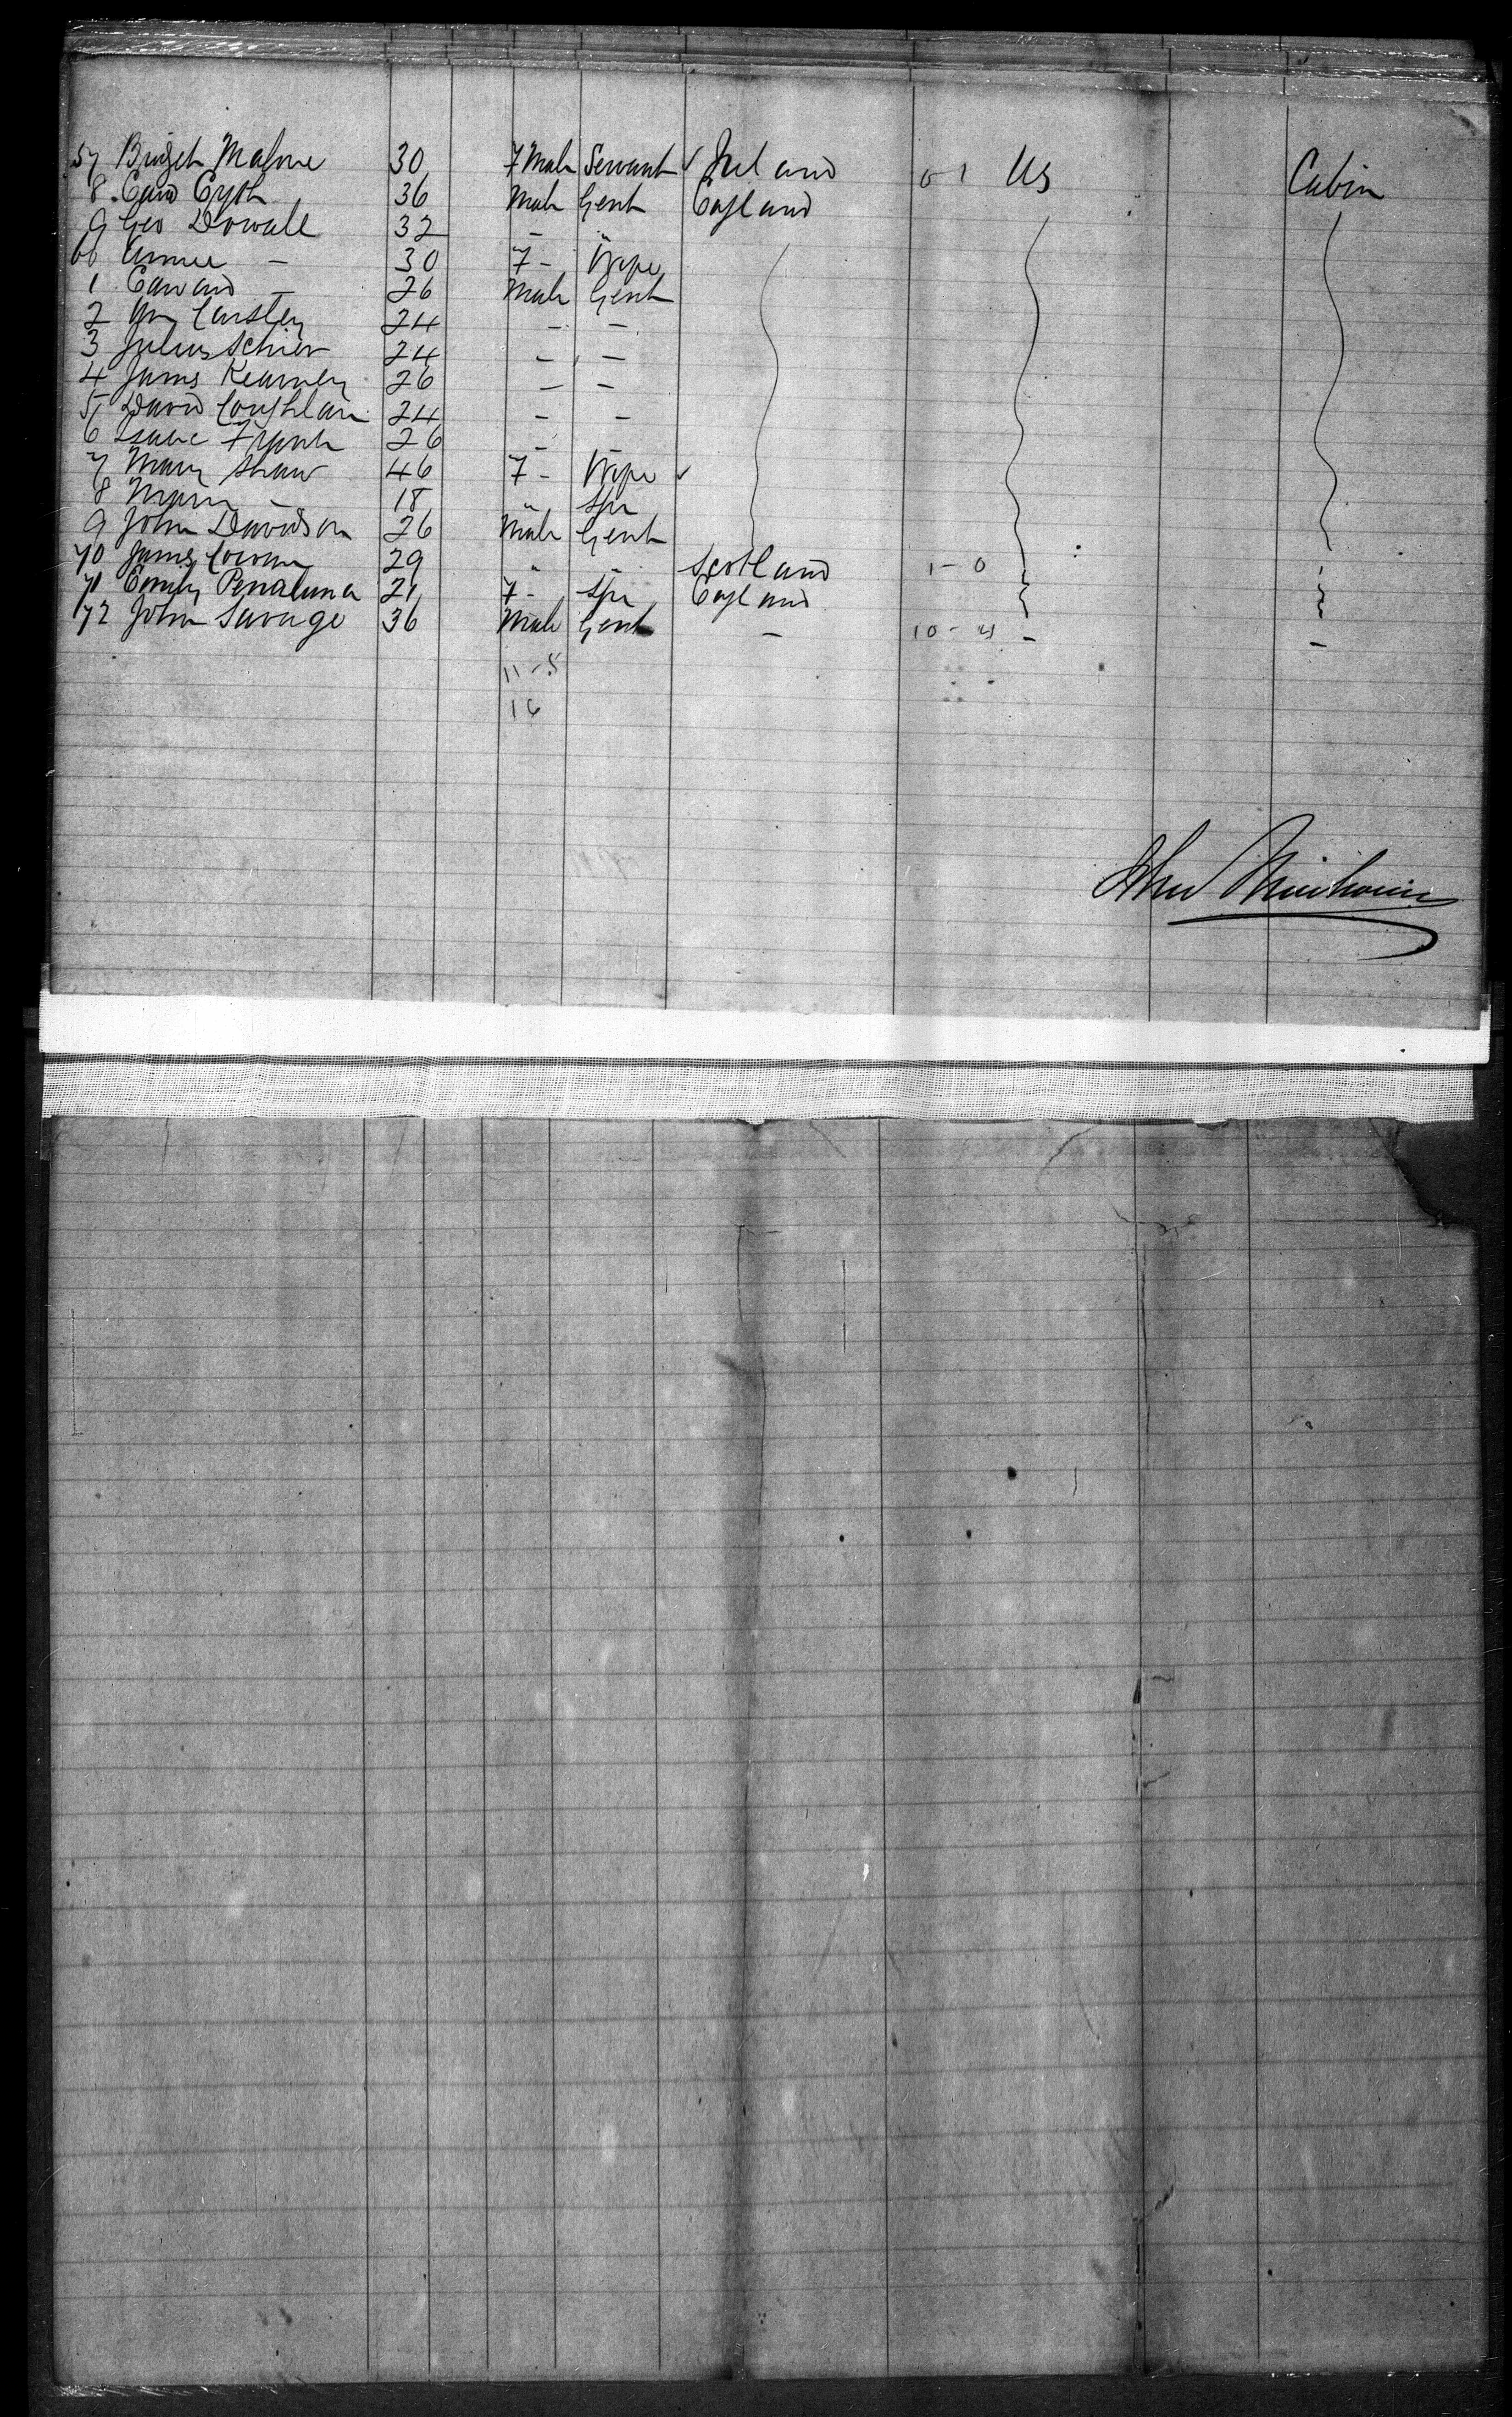 57 Bridget Malone 30 Female Servant ✓ Ireland 0-1 US Cabin
8 Edwd Cyth 36 Male Gent England
9 Geo Dowall 32 - "
60 Annie - 30 F - Wife
1 Edward - 26 Male Gent
2 Wm Carsley 24 - -
3 Julius Schier 24 - -
4 James Kearney 26 - -
5 David Coughlan 24 - -
6 Isaac French 26 - -
7 Mary Shaw 46 F - Wife ✓
8 Mary - 18 " Spr
9 John Davidson 26 Male Gent
70 James Cowan 29 " " Scotland 1-0
71 Emily Penaluna 21 F - Spr England
172 John Savage 36 Male Gent - 10-4 - -
11-5
16
John